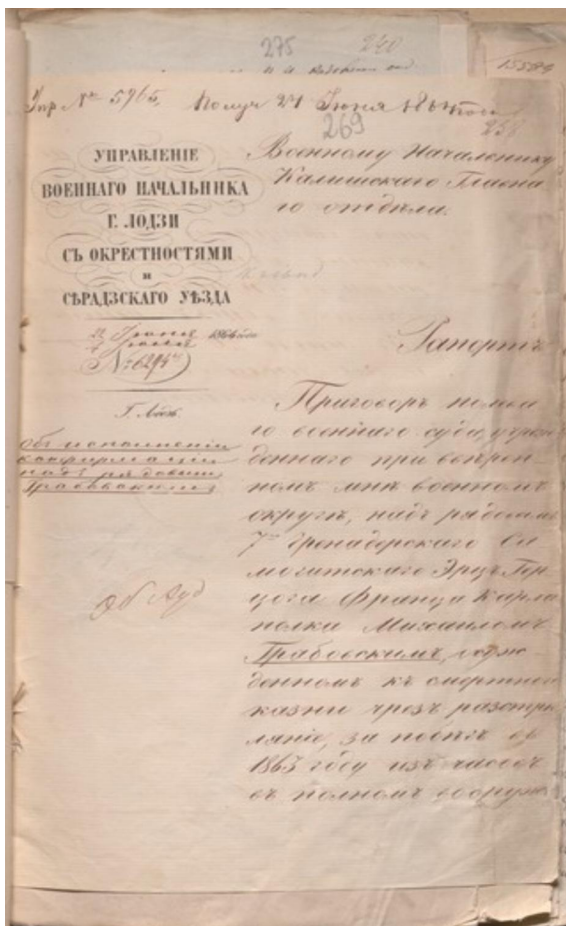 275
240
15589
Вхр № 5965. Получ 24 Июня 1864 года
269
258
УПРАВЛЕНІЕ
ВОЕННАГО НАЧАЛЬНИКА
Г. ЛОДЗИ
СЪ ОКРЕСТНОСТЯМИ
и
СѢРАДЗСКАГО УѢЗДА
Іюня 1864 года
№ 6294
Г. Лодзь.
Объ исполненіи
конфирмаціи
надъ рядовымъ
Грабовскимъ
Об Ауд
Военному Начальнику
Калишскаго Главна
го отдѣла.
Рапортъ
Приговоръ полева
го военнаго суда, учреж
деннаго при ввѣрен-
номъ мнѣ военномъ
округѣ, надъ рядовымъ
7го Гренадерскаго Са
могитскаго Эрцъ Гер
цога Франца Карла
полка Михаиломъ
Грабовскимъ, осуж-
денномъ къ смертной
казни чрезъ разстрѣ
ляніе, за побѣгъ въ
1863 году изъ часовъ
въ полномъ вооруж